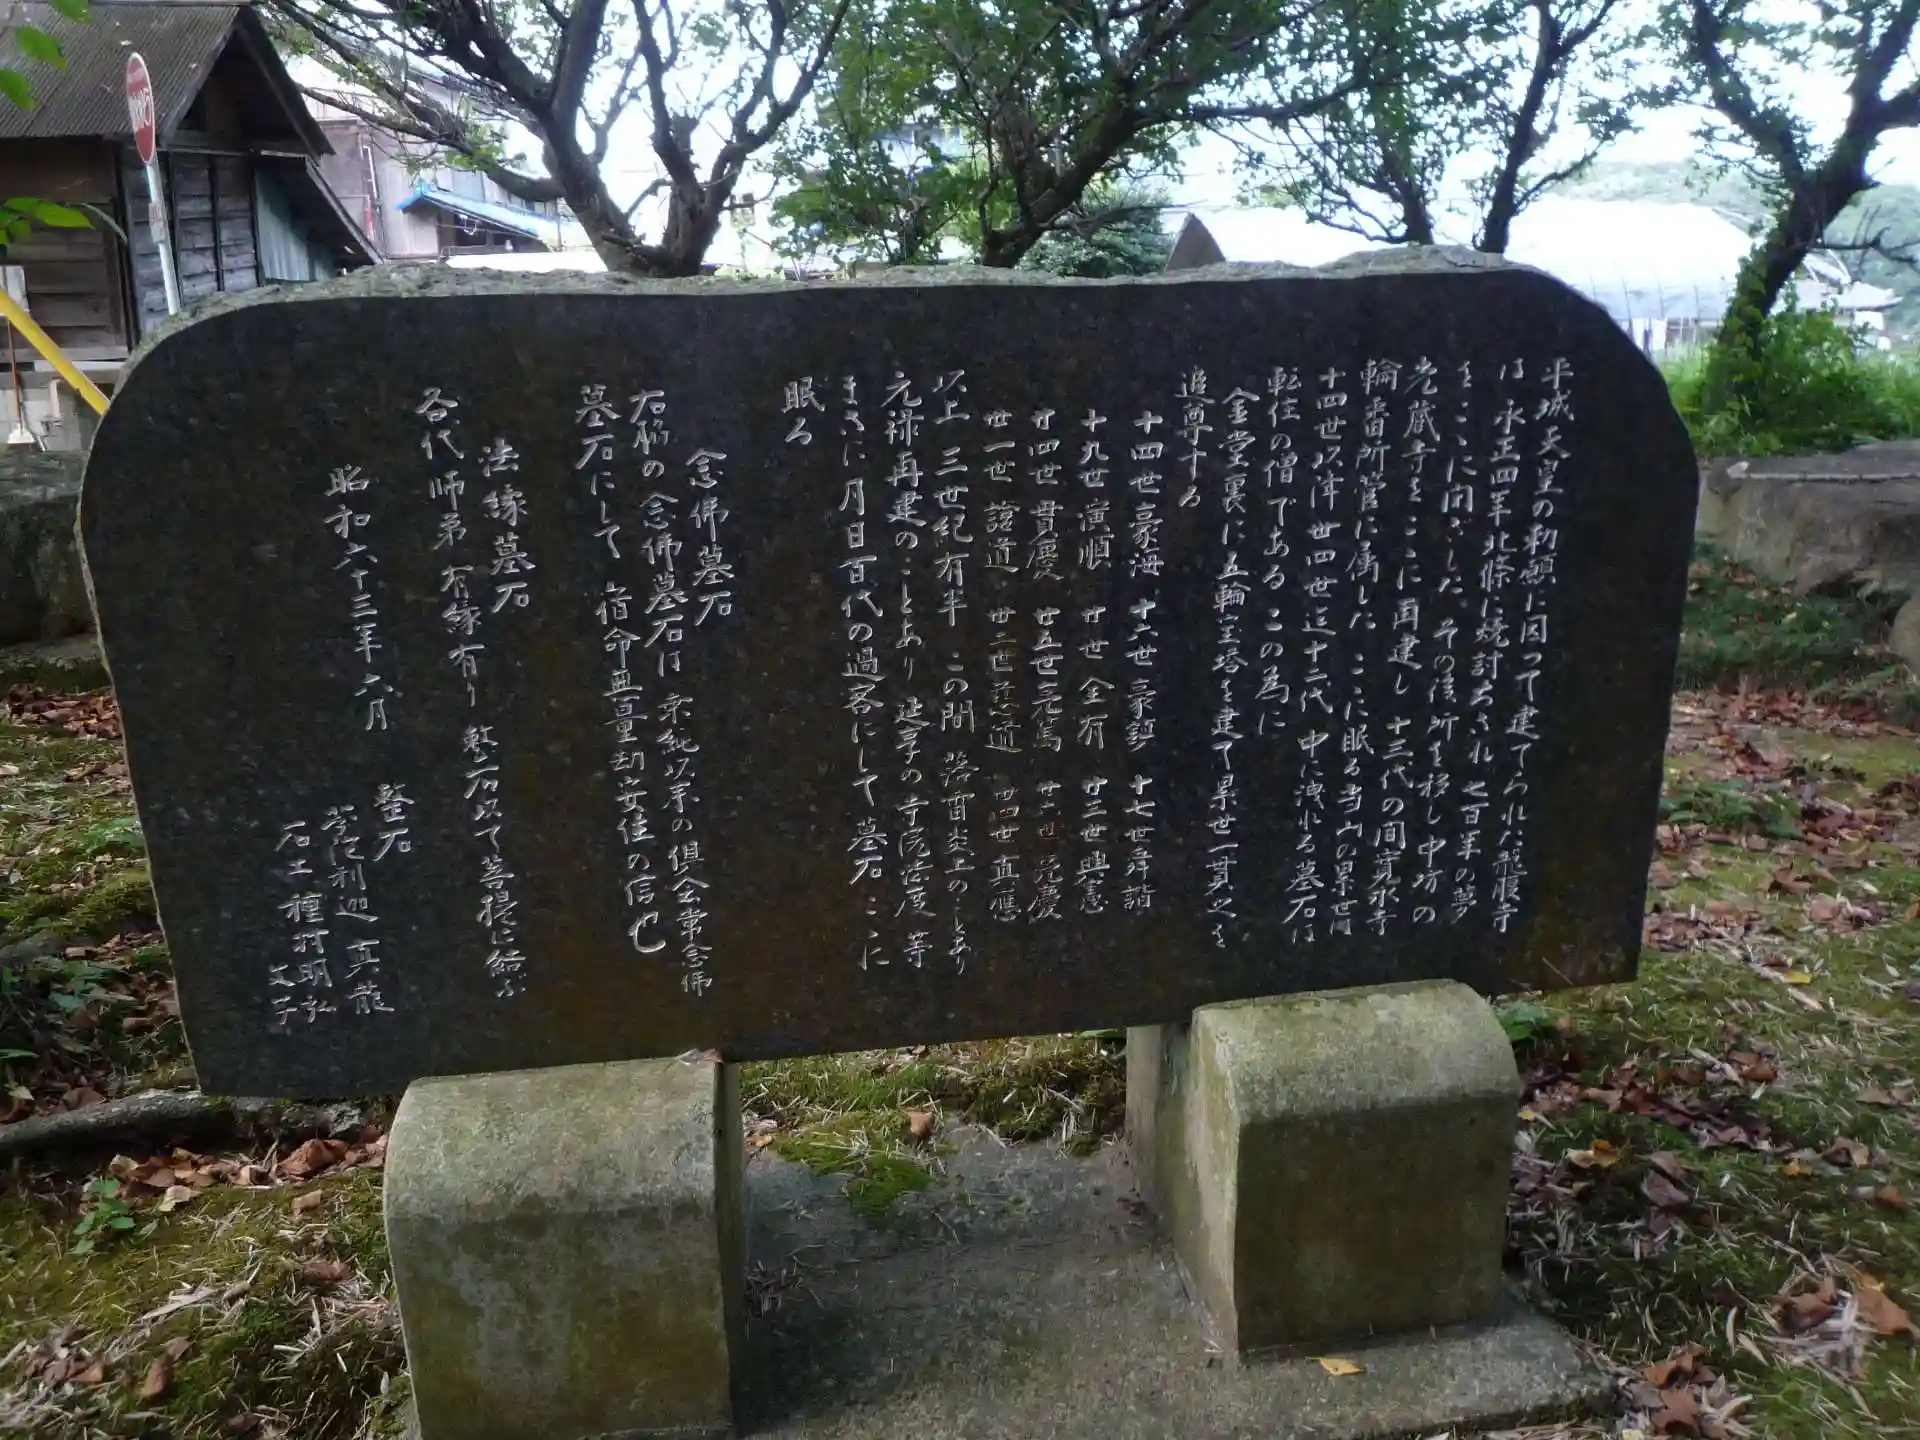 平城天皇の勅願に因って建てられた龍腹寺
は 永正四年北條に焼討ちされ 七百年の夢
をここに閉ざした。その後 所を移し中坊の
光蔵寺をここに再建し 十三代の間寛永寺
輪番所管に属した ここに眠る当山の累世は
十四世以降 廿四世迄十二代 中に洩れる墓石は
転住の僧である この為に
金堂裏に五輪宝塔を建て累世一貫之を
追尊する
十四世 豪海 十六世 豪 十七世 舜諧
十九世 演順 廿世 全有 廿三世 興憲
廿四世 貫慶 廿五世 亮篤 廿六世 光慶
廿一世 證道 廿二世 道 廿四世 真應
以上 三世紀有半 この間 落雷炎上のことあり
元禄再建のことあり 延享の寺院法度 等
まさに月日百代の過客にして 墓石 ここに
眠る
念佛墓石
右脇の念佛墓石は 来純以来の倶会常念佛
墓石にして 宿命無量劫安住の信也
法縁墓石
各代師弟 有縁有り 整石以て菩提に結ぶ
昭和六十三年六月
整石
利迦 真龍
石工 種村明弘
文子